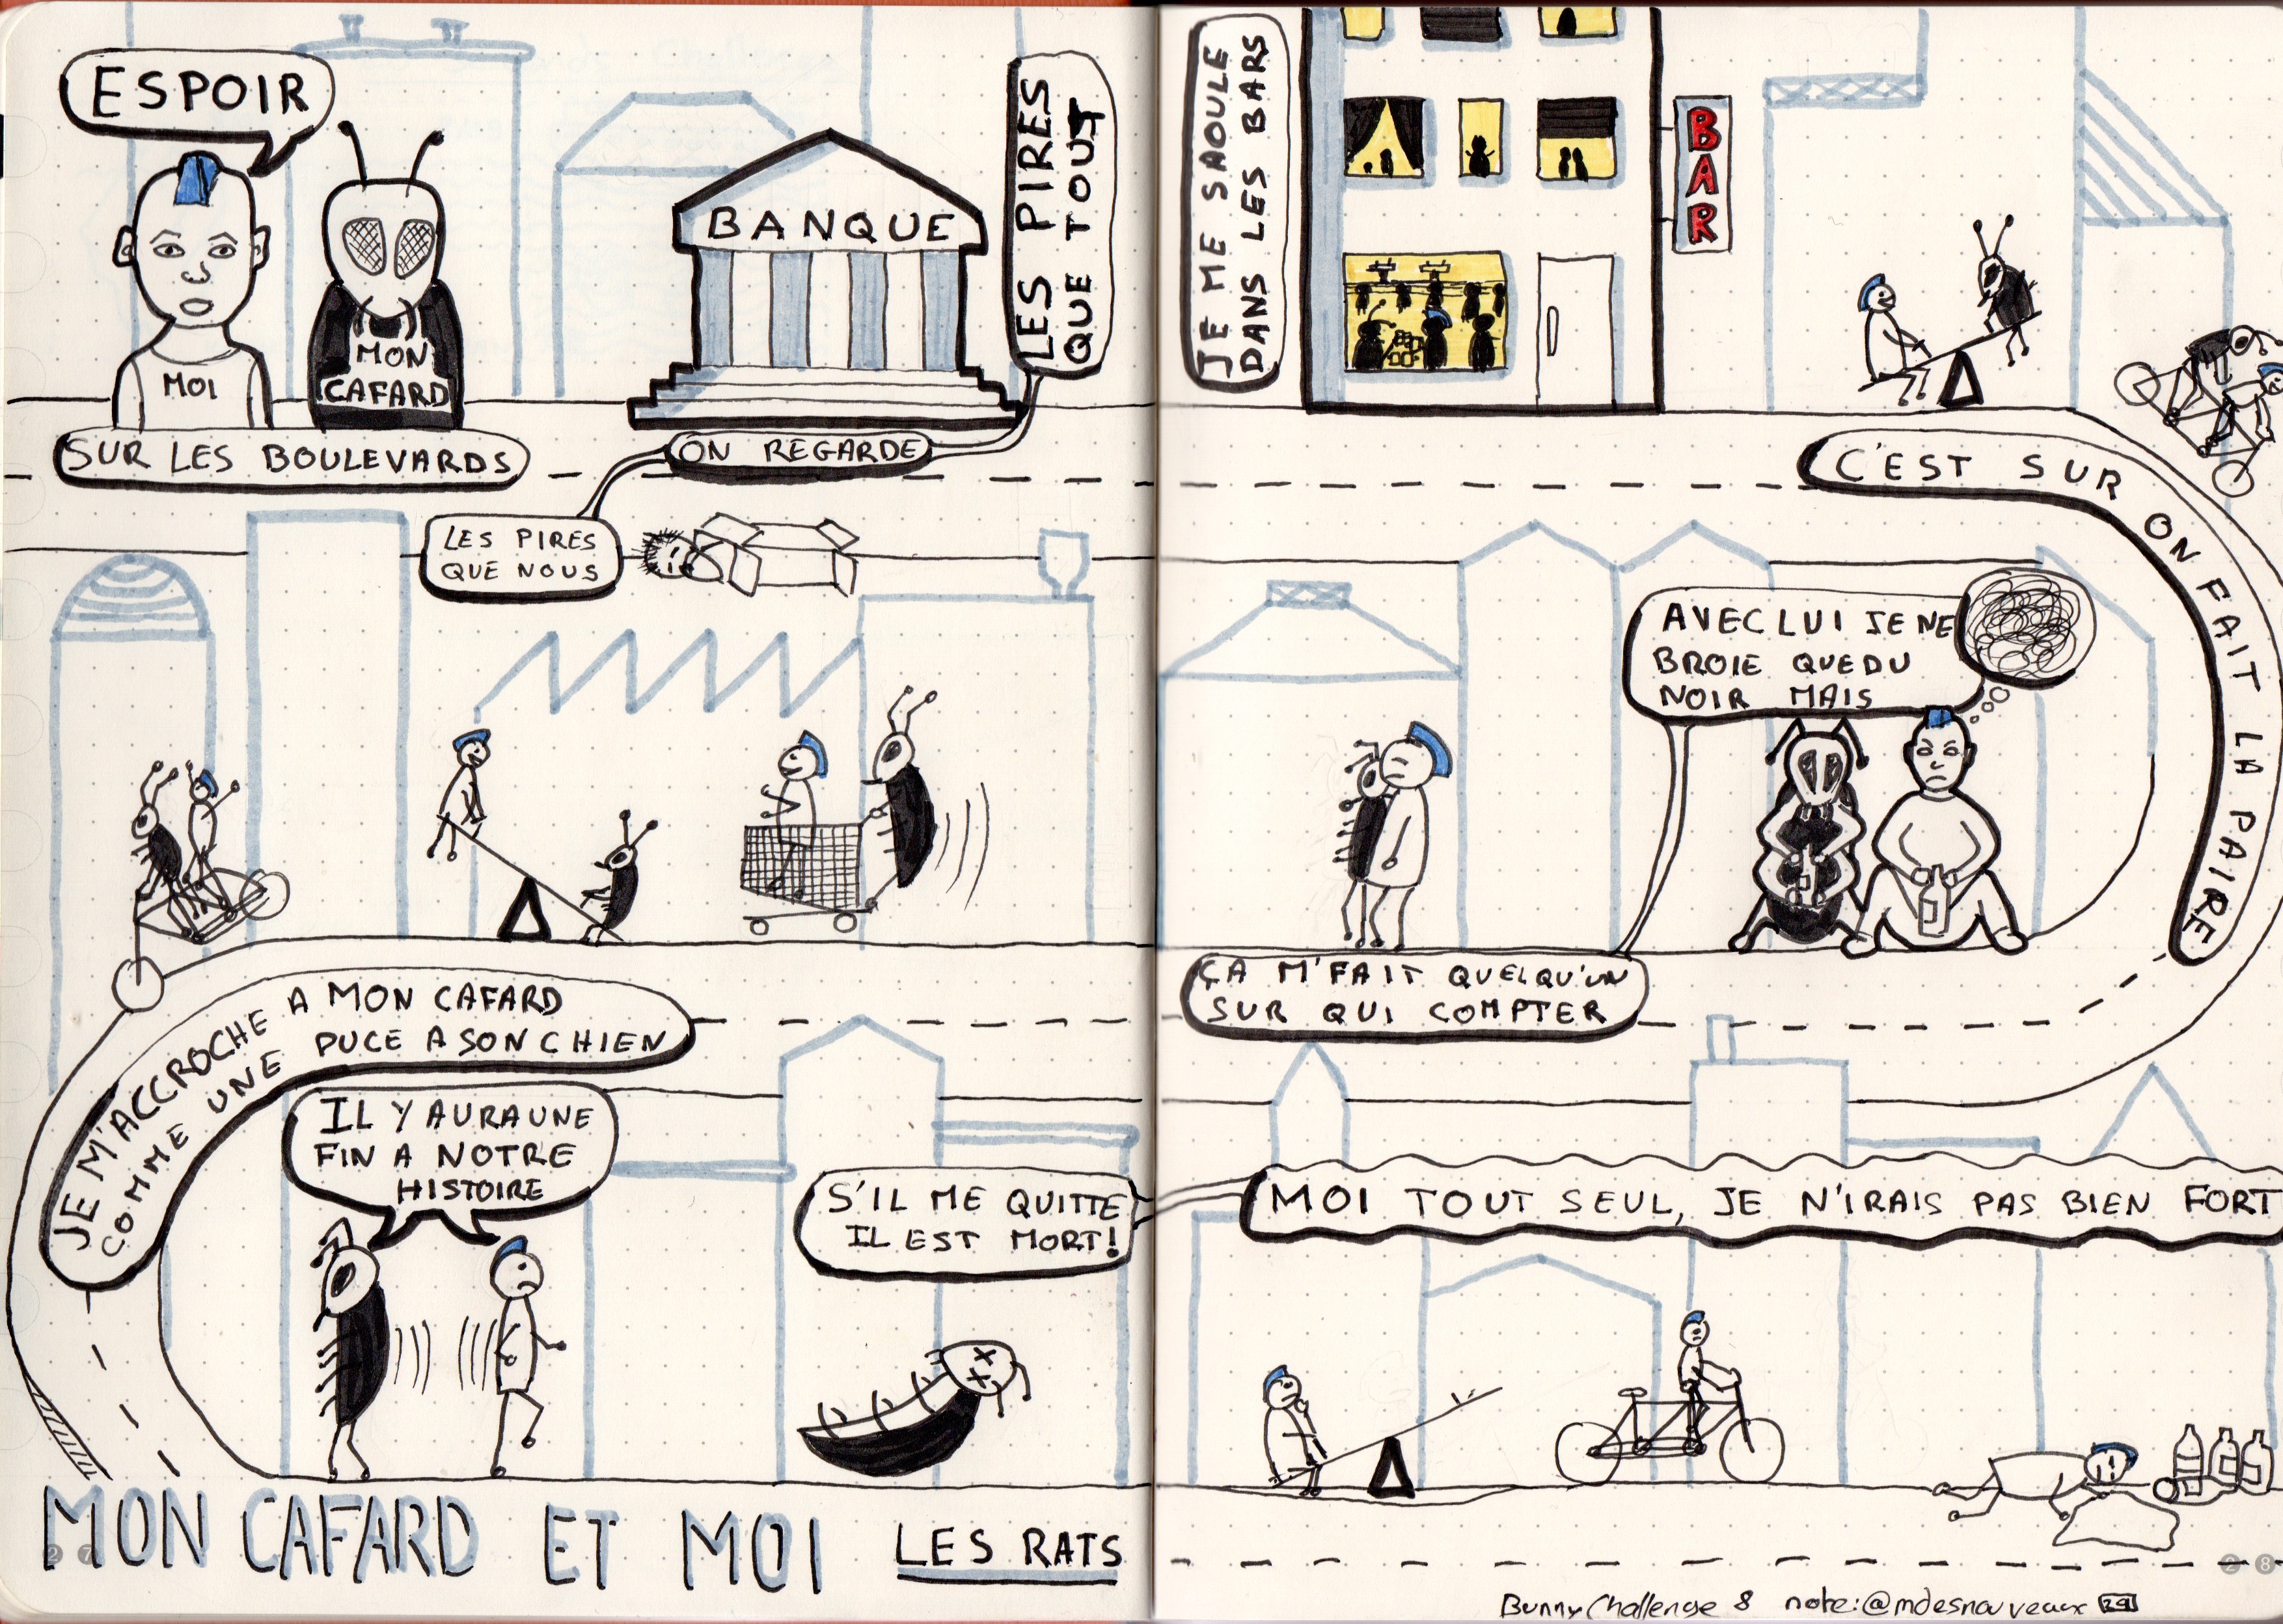 ESPOIR
MOI
MON
CAFARD
SUR LES BOULEVARDS
BANQUE
ON REGARDE
LES PIRES
QUE TOUT
LES PIRES
QUE NOUS
JE ME SAOULE
DANS LES BARS
BAR
C'EST SUR ON FAIT LA PAIRE
AVEC LUI JE NE
BROIE QUE DU
NOIR MAIS
ÇA M'FAIT QUELQU'UN
SUR QUI COMPTER
JE M'ACCROCHE A MON CAFARD
COMME UNE PUCE A SON CHIEN
IL Y AURA UNE
FIN A NOTRE
HISTOIRE
S'IL ME QUITTE
IL EST MORT!
MOI TOUT SEUL, JE N'IRAIS PAS BIEN FORT
MON CAFARD ET MOI LES RATS
27
28
Bunny Challenge 8 note: @mdesnouveaux